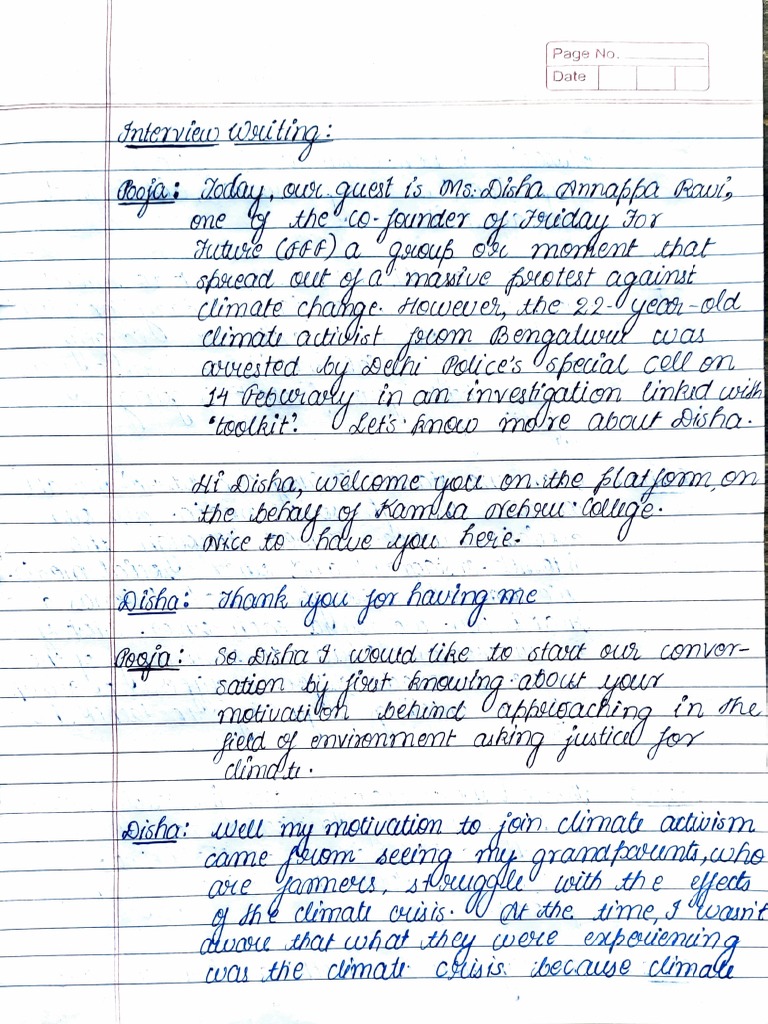 Page No.
Date
Interview Writing:
Pooja: Today, our guest is Ms. Disha Annappa Ravi,
one of the co-founder of Friday For
Future (FFF) a group or moment that
spread out of a massive protest against
climate change. However, the 22-year-old
climate activist from Bengaluru was
arrested by Delhi Police's special cell on
14 Feburary in an investigation linked with
'toolkit'. Let's know more about Disha.
Hi Disha, welcome you on the platform, on
the behalf of Kamla Nehru College.
Nice to have you here.
Disha: Thank you for having me
Pooja: So Disha I would like to start our conver-
sation by first knowing about your
motivation behind approaching in the
field of environment asking justice for
climate.
Disha: Well my motivation to join climate activism
came from seeing my grandparents, who
are farmers, struggle with the effects
of the climate crisis. At the time, I wasn't
aware that what they were experiencing
was the climate crisis because climate